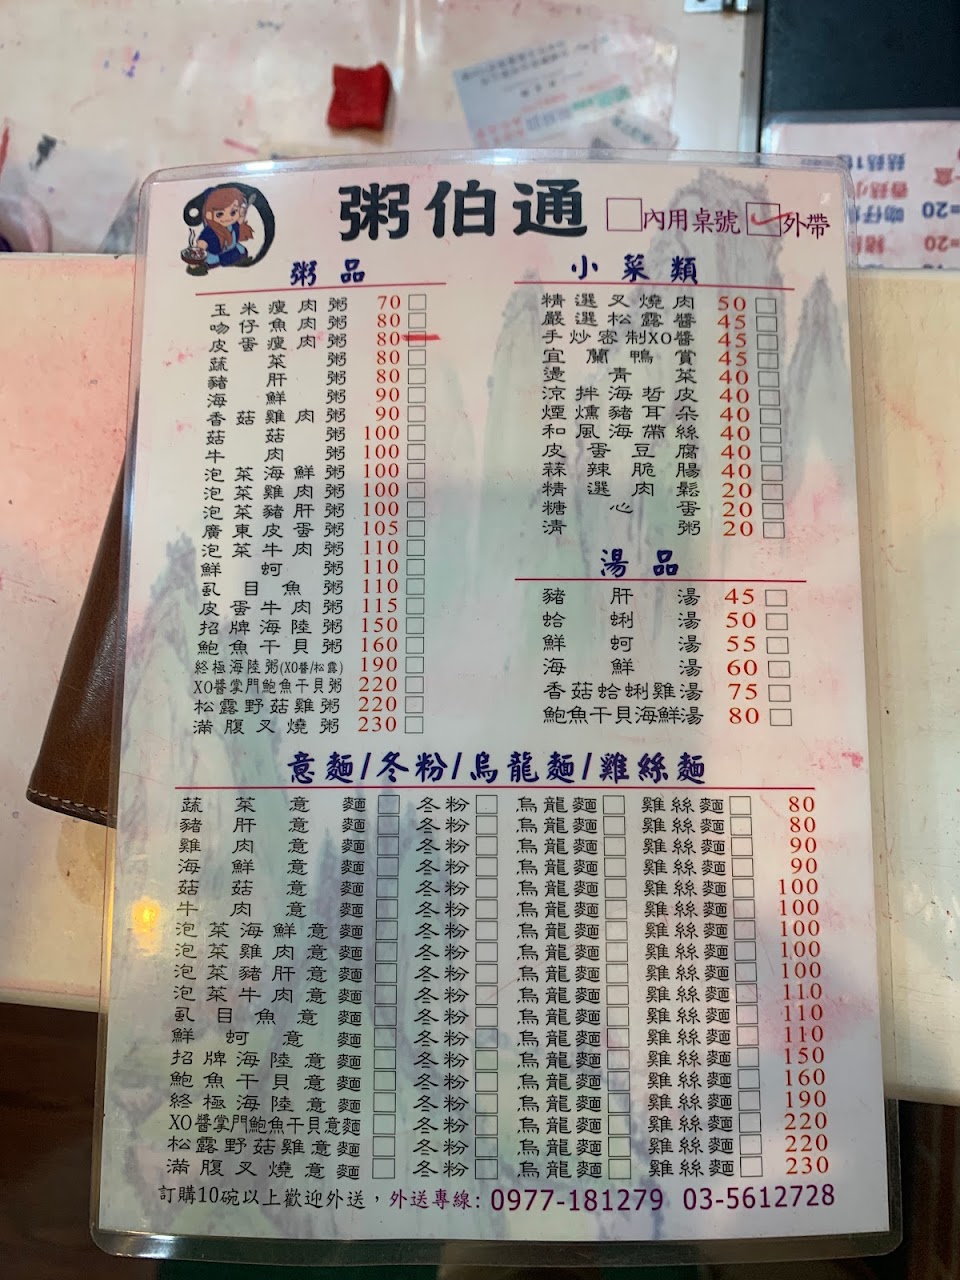 粥伯通 □內用桌號 □外帶
粥品
玉米瘦肉粥 70
吻仔魚肉粥 80
皮蛋瘦肉粥 80
蔬菜粥 80
豬肝粥 80
海鮮粥 90
香菇雞肉粥 90
菇菇粥 100
牛肉粥 100
泡菜海鮮粥 100
泡菜雞肉粥 100
泡菜豬肝粥 100
廣東皮蛋粥 105
泡菜牛肉粥 110
鮮蚵粥 110
虱目魚粥 110
皮蛋牛肉粥 115
招牌海陸粥 150
鮑魚干貝粥 160
終極海陸粥(XO醬/松露) 190
XO醬掌門鮑魚干貝粥 220
松露野菇雞粥 220
滿腹叉燒粥 230
小菜類
精選叉燒肉 50
嚴選松露醬 45
手炒密制XO醬 45
宜蘭鴨賞 45
燙青菜 40
涼拌海哲皮 40
煙燻豬耳朵 40
和風海帶絲 40
皮蛋豆腐 40
蒜辣脆腸 40
精選肉鬆 20
糖心蛋 20
清粥 20
湯品
豬肝湯 45
蛤蜊湯 50
鮮蚵湯 55
海鮮湯 60
香菇蛤蜊雞湯 75
鮑魚干貝海鮮湯 80
意麵/冬粉/烏龍麵/雞絲麵
蔬菜意麵 冬粉 烏龍麵 雞絲麵 80
豬肝意麵 冬粉 烏龍麵 雞絲麵 80
雞肉意麵 冬粉 烏龍麵 雞絲麵 90
海鮮意麵 冬粉 烏龍麵 雞絲麵 90
菇菇意麵 冬粉 烏龍麵 雞絲麵 100
牛肉意麵 冬粉 烏龍麵 雞絲麵 100
泡菜海鮮意麵 冬粉 烏龍麵 雞絲麵 100
泡菜雞肉意麵 冬粉 烏龍麵 雞絲麵 100
泡菜豬肝意麵 冬粉 烏龍麵 雞絲麵 100
泡菜牛肉意麵 冬粉 烏龍麵 雞絲麵 110
虱目魚意麵 冬粉 烏龍麵 雞絲麵 110
鮮蚵意麵 冬粉 烏龍麵 雞絲麵 110
招牌海陸意麵 冬粉 烏龍麵 雞絲麵 150
鮑魚干貝意麵 冬粉 烏龍麵 雞絲麵 160
終極海陸意麵 冬粉 烏龍麵 雞絲麵 190
XO醬掌門鮑魚干貝意麵 冬粉 烏龍麵 雞絲麵 220
松露野菇雞意麵 冬粉 烏龍麵 雞絲麵 220
滿腹叉燒意麵 冬粉 烏龍麵 雞絲麵 230
訂購10碗以上歡迎外送，外送專線: 0977-181279 03-5612728